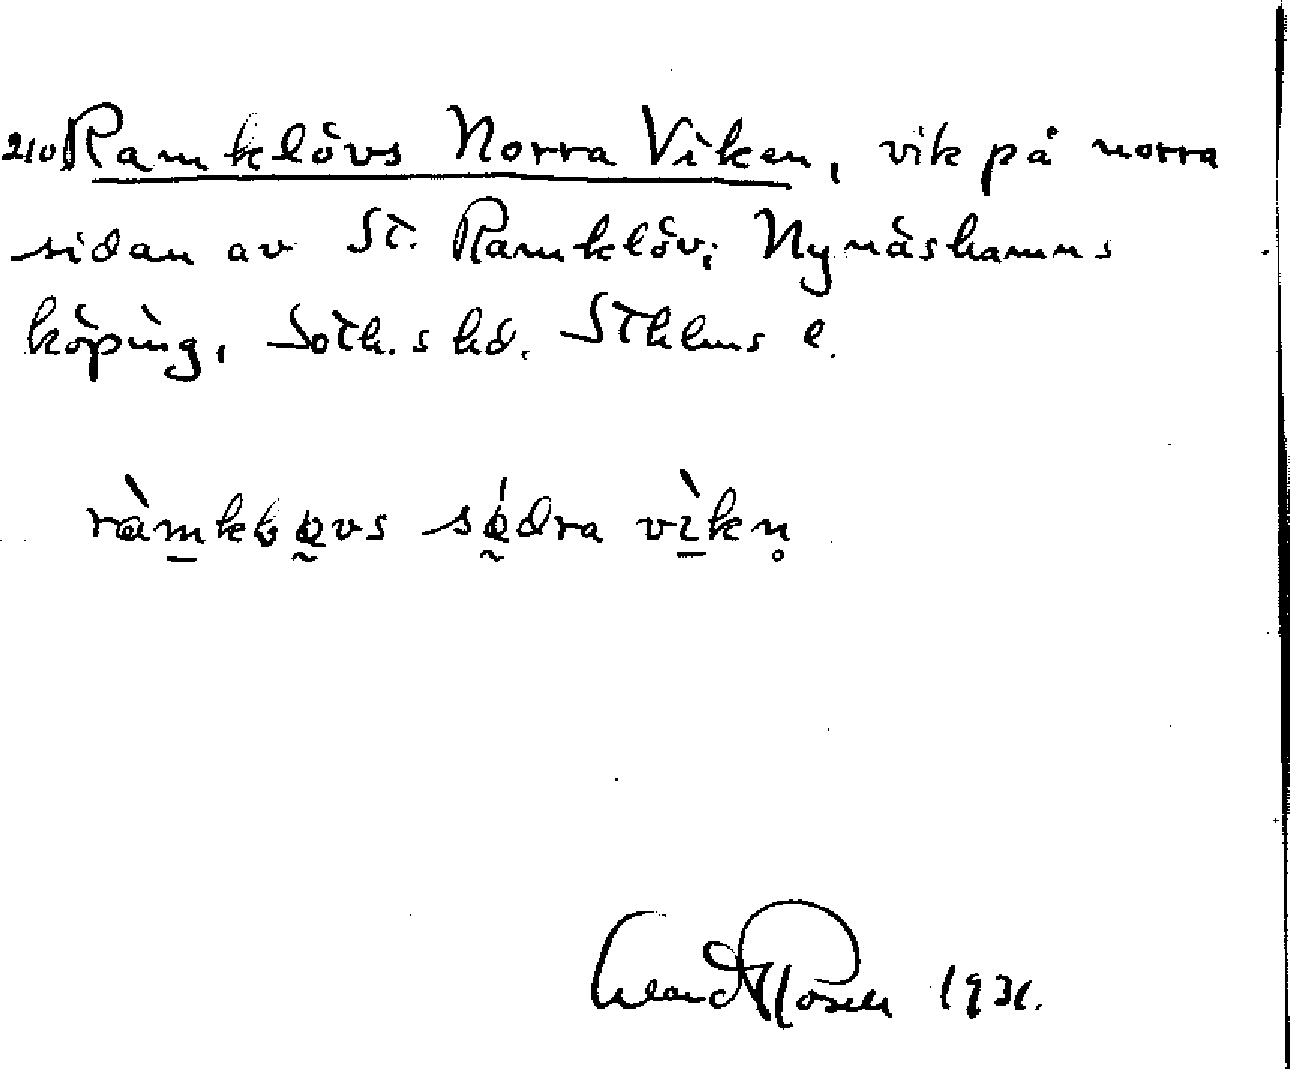 210 Ramklövs Norra Viken, vik på norra
sidan av St. Ramklöv; Nynäshamns
köping, Soth.s hd. Sthlms l.
ràm̲kɭø̰vs sǿ̰dra vì̲kn̥
Erland Rosell 1931.